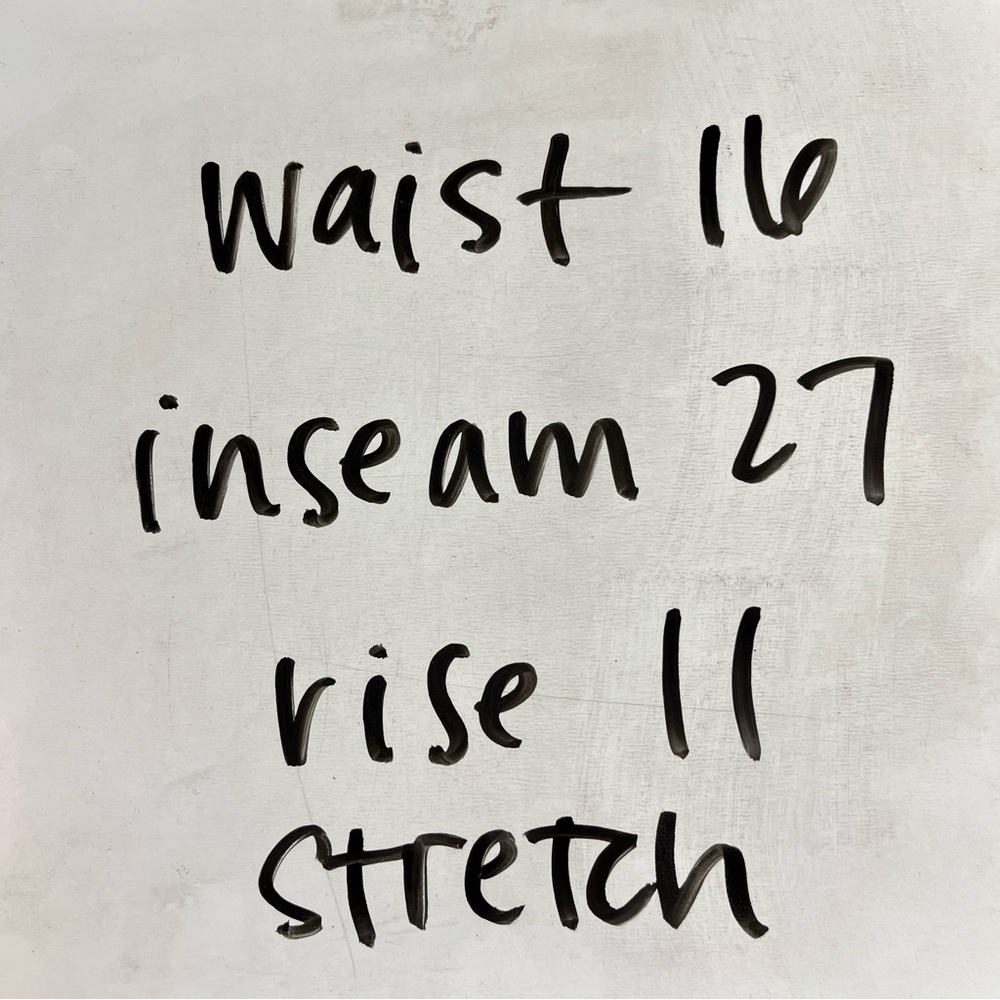 waist 16
inseam 27
rise 11
stretch